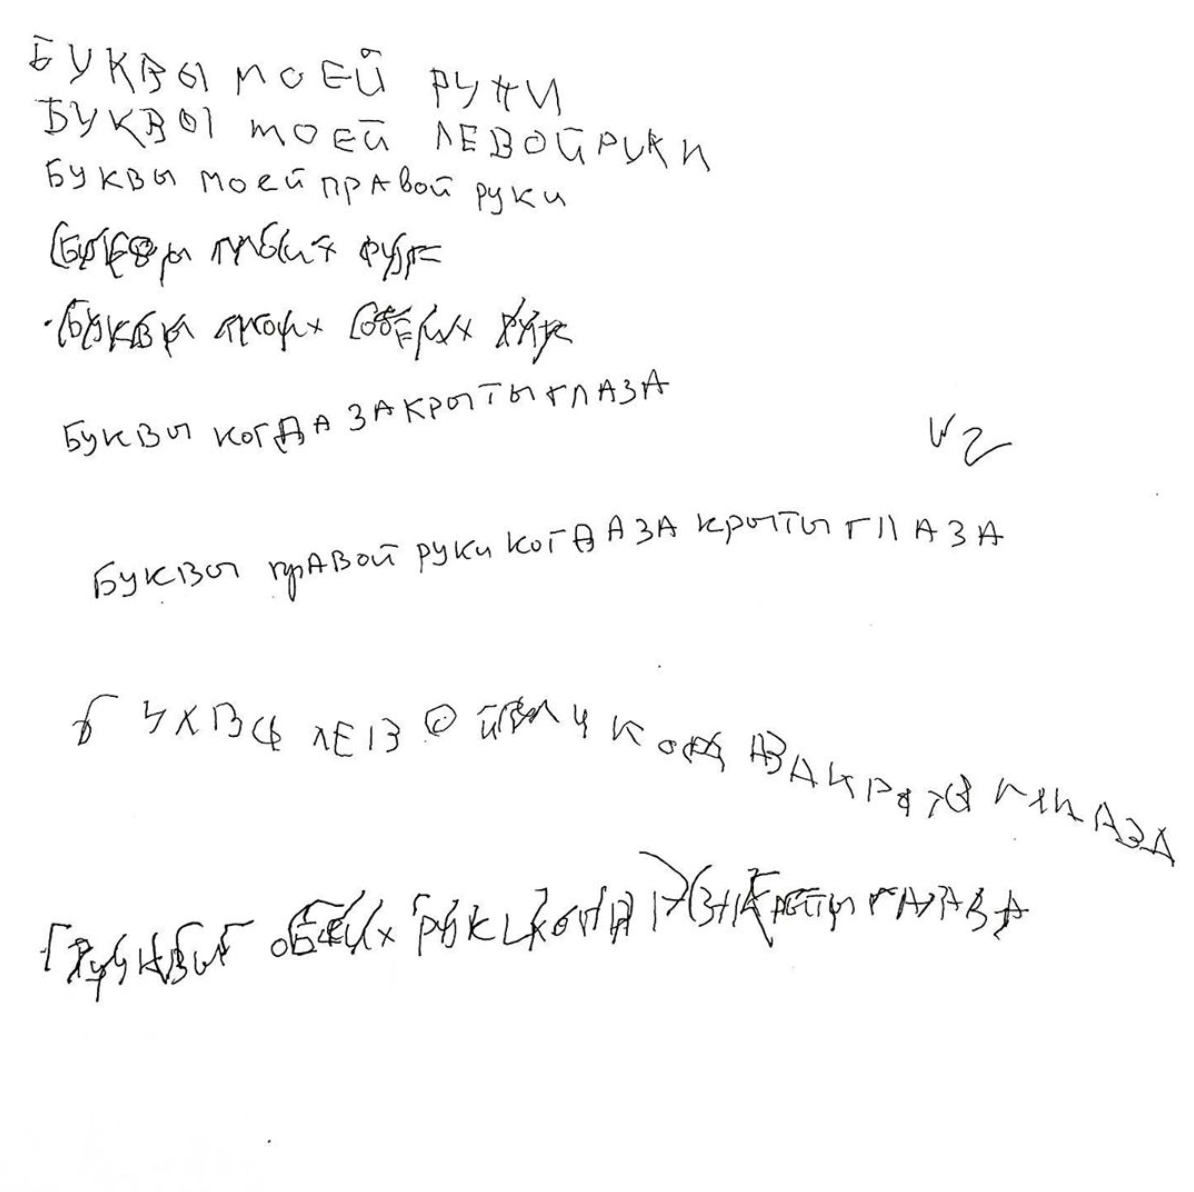 БУКВЫ МОЕЙ РУКИ
БУКВЫ МОЕЙ ЛЕВОЙ РУКИ
БУКВЫ МОЕЙ ПРАВОЙ РУКИ
БУКВЫ МОИХ РУК
БУКВЫ МОИХ ОБЕИХ РУК
БУКВЫ КОГДА ЗАКРЫТЫ ГЛАЗА
БУКВЫ ПРАВОЙ РУКИ КОГДА ЗАКРЫТЫ ГЛАЗА
БУКВЫ ЛЕВОЙ КОГДА ЗАКРЫТЫ ГЛАЗА
ОБЕИХ РУК КОГДА ЗАКРЫТЫ ГЛАЗА